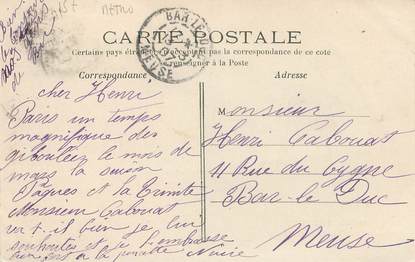 METRO
BAR-LE-DUC
MEUSE
CARTE POSTALE
Certains pays étrangers n'acceptant pas la correspondance de ce côté
se renseigner à la Poste
Correspondance
Adresse
cher Henri
Paris un temps
magnifique des
giboulées le mois de
mars la saison
Pâques et la Trinité
Monsieur Cabouat
va t. il bien je lui
souhaites et je l'embrasse
Monsieur
Henri Cabouat
11 Rue du Cygne
Bar-le Duc
Meuse